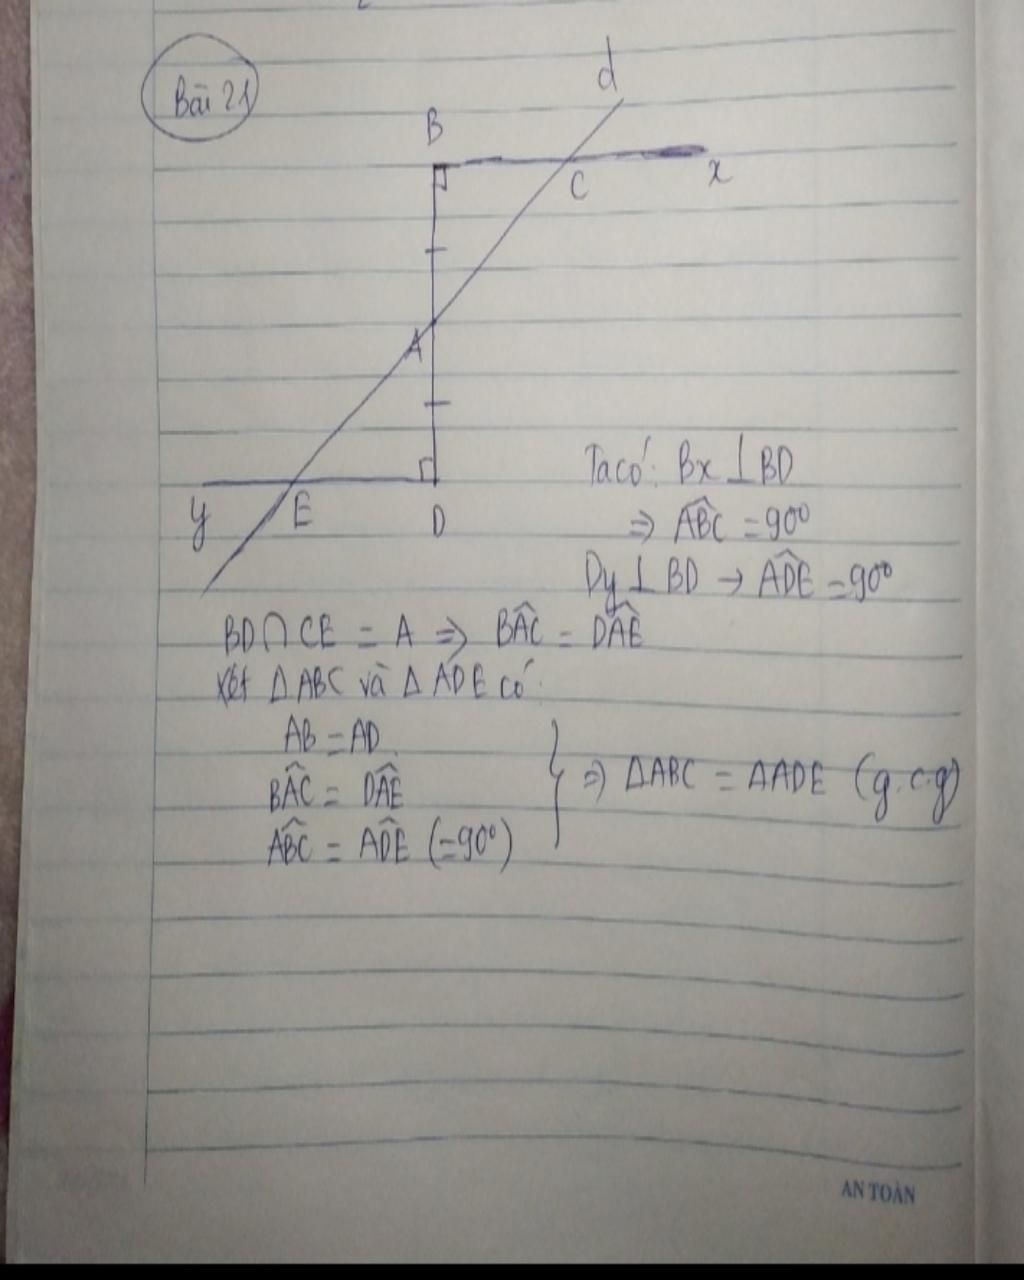 Bài 21
d
B
C
x
A
y
E
D
Ta có: Bx ⊥ BD
⇒ ABC̑ = 90°
Dy ⊥ BD → ADȆ = 90°
BD ∩ CE = A ⇒ BAC̑ = DAȆ
Xét ΔABC và ΔADE có:
AB = AD
BAC̑ = DAȆ
ABC̑ = ADȆ (=90°)
} ⇒ ΔABC = ΔADE (g.c.g)
AN TOÀN